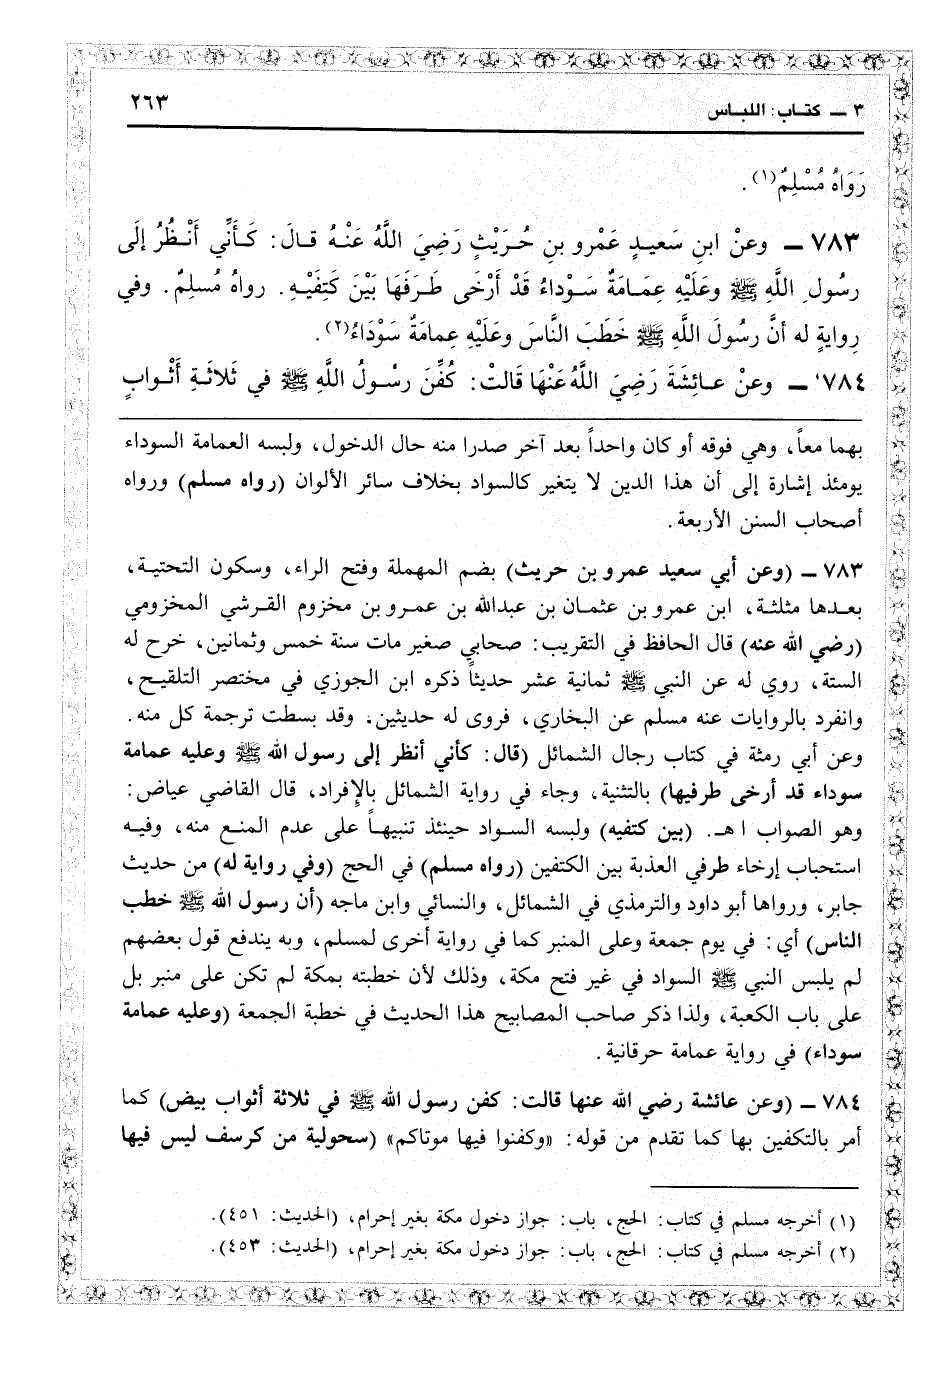 ٣ ــ كتــاب: اللبــاس ٢٦٣
رَوَاهُ مُسْلِمٌ(١).
٧٨٣ ــ وعنْ ابنِ سَعيـدٍ عَمْرو بنِ حُـرَيْثٍ رَضِيَ اللَّهُ عَنْـهُ قـالَ: كَـأَنِّي أَنْـظُرُ إلَى
رسُولِ اللَّهِ ﷺ وعَلَيْهِ عِمَـامَةٌ سَـوْداءُ قَدْ أَرْخَى طَـرَفَهَا بَيْنَ كَتِفَيْـهِ. رواهُ مُسلِمٌ. وفي
رِوايةٍ له أنَّ رسُولَ اللَّهِ ﷺ خَطَبَ النَّاسَ وعَلَيْهِ عِمامَةٌ سَوْدَاءُ(٢).
٧٨٤ ــ وعنْ عـائِشَةَ رَضِيَ اللَّهُ عَنْهَا قَالَتْ: كُفِّنَ رسُـولُ اللَّهِ ﷺ في ثَلاثَـةِ أَثْـوابٍ
بهما معاً، وهي فوقه أو كان واحداً بعد آخر صدرا منه حال الدخول، ولبسه العمامة السوداء
يومئذ إشارة إلى أن هذا الدين لا يتغير كالسواد بخلاف سائر الألوان (رواه مسلم) ورواه
أصحاب السنن الأربعة.
٧٨٣ ــ (وعن أبي سعيد عمرو بن حريث) بضم المهملة وفتح الراء، وسكون التحتيـة،
بعـدها مثلثـة، ابن عمرو بن عثمـان بن عبدالله بن عمـرو بن مخزوم القـرشي المخزومي
(رضي الله عنه) قال الحافظ في التقريب: صحابي صغير مات سنة خمس وثمانين، خرح له
الستة، روي له عن النبي ﷺ ثمانية عشر حديثاً ذكره ابن الجوزي في مختصر التلقيح،
وانفرد بالروايات عنه مسلم عن البخاري، فروى له حديثين. وقد بسطت ترجمة كل منه.
وعن أبي رمثة في كتاب رجال الشمائل (قال: كأني أنظر إلى رسول الله ﷺ وعليه عمامة
سوداء قد أرخى طرفيها) بالتثنية، وجاء في رواية الشمائل بالإفراد، قال القاضي عياض:
وهو الصواب ا هـ. (بين كتفيه) ولبسه السـواد حينئذ تنبيهـاً على عدم المنـع منه، وفيـه
استحباب إرخاء طرفي العذبة بين الكتفين (رواه مسلم) في الحج (وفي رواية له) من حديث
جابر، ورواها أبو داود والترمذي في الشمائل، والنسائي وابن ماجه (أن رسول الله ﷺ خطب
الناس) أي: في يوم جمعة وعلى المنبر كما في رواية أخرى لمسلم، وبه يندفع قول بعضهم
لم يلبس النبي ﷺ السواد في غير فتح مكة، وذلك لأن خطبته بمكة لم تكن على منبر بل
على باب الكعبة، ولذا ذكر صاحب المصابيح هذا الحديث في خطبة الجمعة (وعليه عمامة
سوداء) في رواية عمامة حرقانية.
٧٨٤ ــ (وعن عائشة رضي الله عنها قالت: كفن رسول الله ﷺ في ثلاثة أثواب بيض) كما
أمر بالتكفين بها كما تقدم من قوله: «وكفنوا فيها موتاكم» (سحولية من كرسف ليس فيها
(١) أخرجه مسلم في كتاب: الحج، باب: جواز دخول مكة بغير إحرام، (الحديث: ٤٥١).
(٢) أخرجه مسلم في كتاب: الحج، باب: جواز دخول مكة بغير إحرام، (الحديث: ٤٥٣).